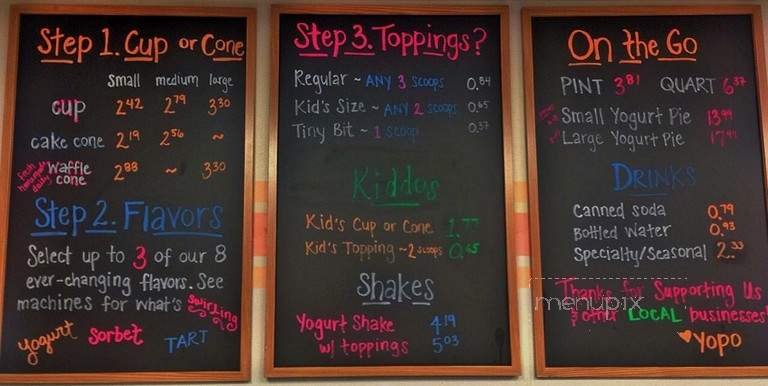 Step 1. Cup or Cone
small medium large
cup 2.42 2.79 3.30
cake cone 2.19 2.56 ~
fresh homemade daily
Waffle cone 2.88 ~ 3.30
Step 2. Flavors
Select up to 3 of our 8
ever-changing flavors. See
machines for what's swirling
yogurt sorbet TART
Step 3. Toppings?
Regular ~ ANY 3 scoops 0.84
Kid's Size ~ ANY 2 scoops 0.65
Tiny Bit ~ 1 scoop 0.37
Kiddos
Kid's Cup or Cone 1.77
Kid's Topping ~ 2 scoops 0.65
Shakes
Yogurt Shake 4.19
w/ toppings 5.03
On the Go
PINT 3.81 QUART 6.37
Small Yogurt Pie 13.99
Large Yogurt Pie
DRINKS
Canned soda 0.79
Bottled Water 0.93
Specialty/Seasonal 2.33
menupix
Thanks for Supporting Us
& other LOCAL businesses!
♥YOPO